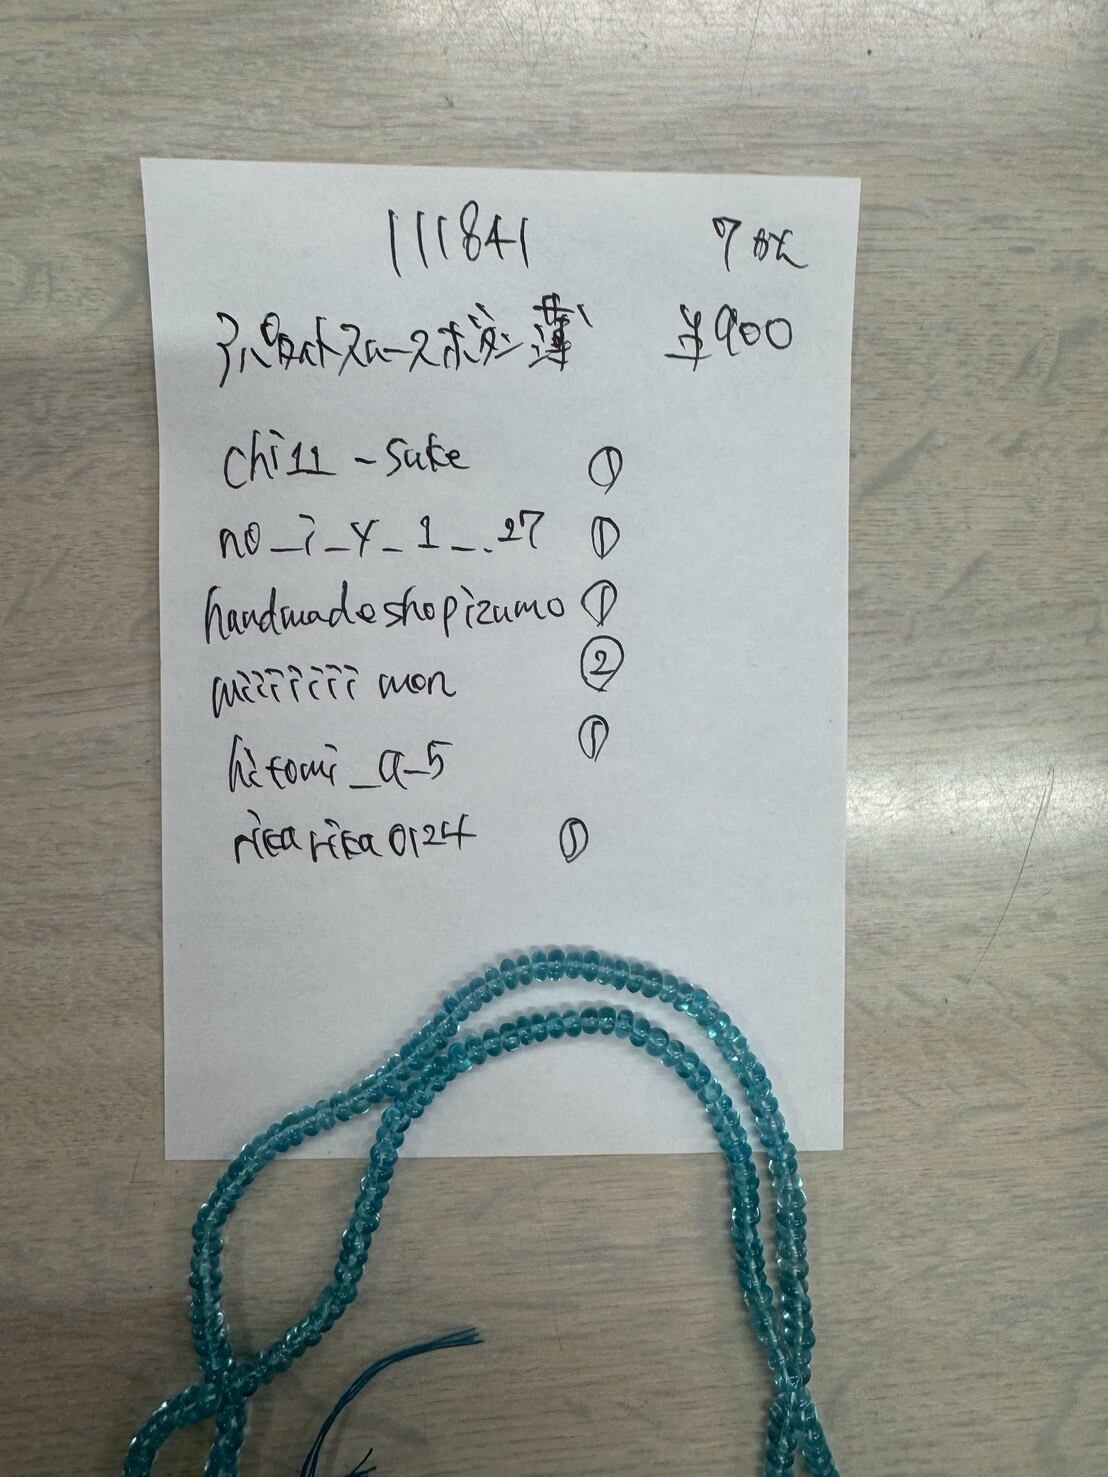 111841 7点
アパタイトスムースボタン薄 ¥900
chi11-suke ①
no_i_y_1_.27 ①
handmadeshopizumo ①
miiiiiiii mon ②
hitomi_a_5 ①
rikarika0124 ①